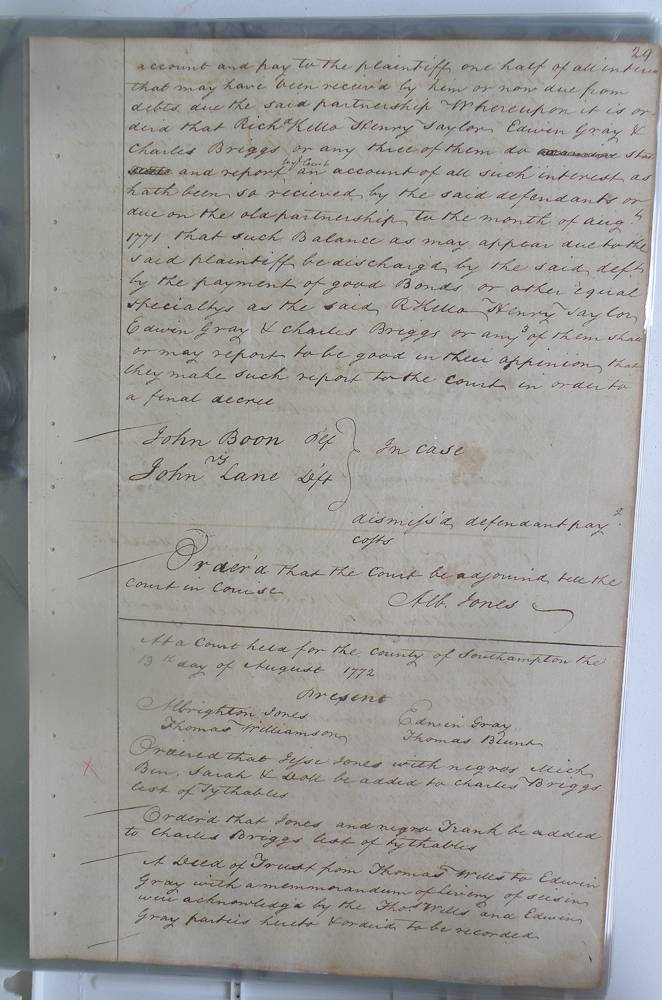 29
account and pay to the plaintiff one half of all inte
that may have been receiv'd by him or now due from
debts due the said partnership Whereupon it is or
der'd that Richd Kello Henry Taylor Edwin Gray &
Charles Briggs or any three of them do sta
by ye Court
and report an account of all such interest as
hath been so recieved by the said defendants or
due on the old partnership to the month of Augt
1771 that such Balance as may appear due to the
said plaintiff be discharg'd by the said deft
by the payment of good Bonds or other equal
specialtys as the said R Kello Henry Taylor
Edwin Gray & Charles Briggs or any 3 of them shall
or may report to be good in their oppinion that
they make such report to the court in order to
a final decree
John Boon
vs
In case
John Lane Deft
dismiss'd defendant pay
costs
Order'd that the Court be adjourn'd till the
court in Course
Alb. Jones
At a Court held for the County of Southampton the
13th day of August 1772
Present
Albrighton Jones
Edwin Gray
Thomas Williamson
Thomas Blunt
Ordered that Jesse Jones with negros Mich
Ben, Sarah & Doll be added to Charles Briggs
list of Tythables
Order'd that Jones and negro Frank be added
to Charles Briggs list of tythables
A Deed of Trust from Thomas Wills to Edwin
Gray with a memmorandum of livery of seisin
were acknowledg'd by the Thos Wills and Edwin
Gray parties hereto & order'd to be recorded